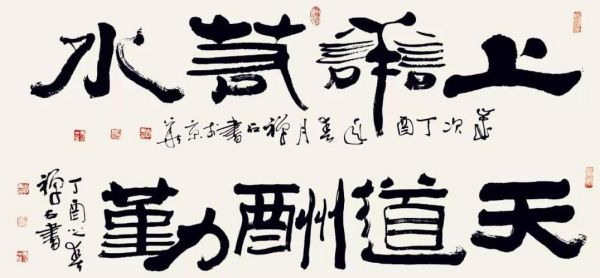 上善若水
歲次丁酉年春月禪石書於京華
天道酬勤
丁酉之春
禪石書